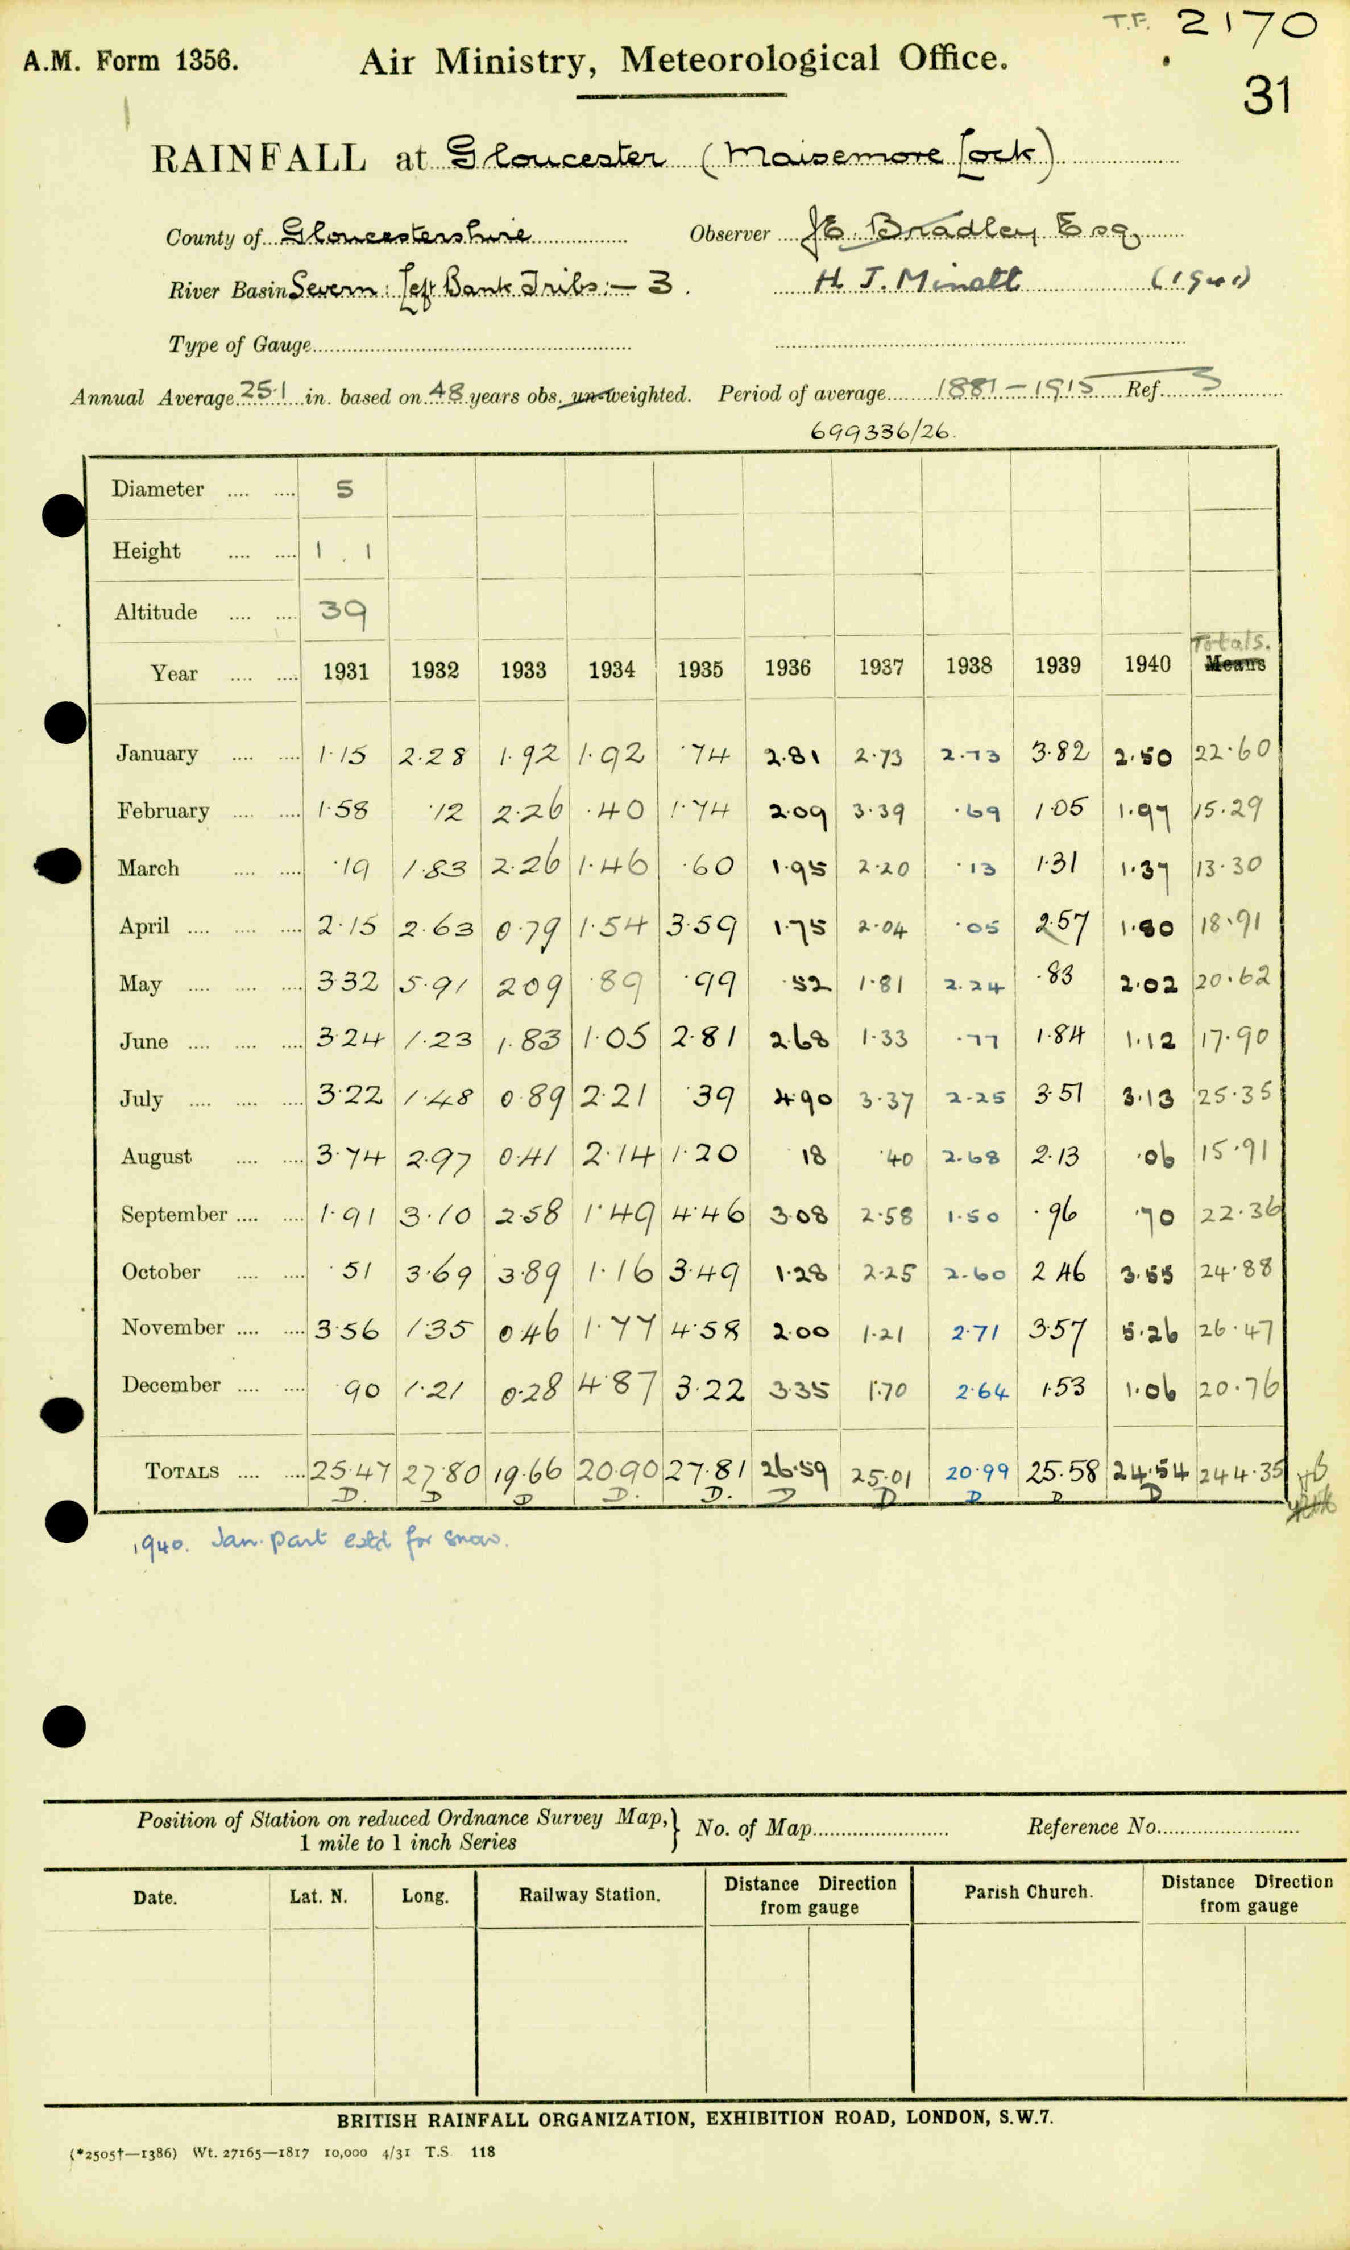 T.F. 2170
A.M. Form 1356.
Air Ministry, Meteorological Office.
31
RAINFALL at Gloucester (Maisemore Lock)
County of Gloucestershire Observer J.E. Bradley Esq
River Basin Severn: Left Bank Tribs:- 3. H. J. Minett (1940)
Type of Gauge
Annual Average 25.1 in. based on 48 years obs. un-weighted. Period of average 1881-1915 Ref. 3
699336/26.
Diameter .... .... 5
Height .... .... 1 . 1
Altitude .... .... 39
Totals.
Year .... .... 1931 1932 1933 1934 1935 1936 1937 1938 1939 1940 Means
January .... .... 1.15 2.28 1.92 1.92 .74 2.81 2.73 2.73 3.82 2.50 22.60
February .... .... 1.58 .12 2.26 .40 1.74 2.09 3.39 .69 1.05 1.97 15.29
March .... .... .19 1.83 2.26 1.46 .60 1.95 2.20 .13 1.31 1.37 13.30
April .... .... .... 2.15 2.63 0.79 1.54 3.59 1.75 2.04 .05 2.57 1.80 18.91
May .... .... .... 3.32 5.91 2.09 .89 .99 .52 1.81 2.24 .83 2.02 20.62
June .... .... .... 3.24 1.23 1.83 1.05 2.81 2.68 1.33 .77 1.84 1.12 17.90
July .... .... .... 3.22 1.48 0.89 2.21 .39 4.90 3.37 2.25 3.51 3.13 25.35
August .... .... 3.74 2.97 0.41 2.14 1.20 18 .40 2.68 2.13 .06 15.91
September .... .... 1.91 3.10 2.58 1.49 4.46 3.08 2.58 1.50 .96 .70 22.36
October .... .... .51 3.69 3.89 1.16 3.49 1.28 2.25 2.60 2.46 3.55 24.88
November .... .... 3.56 1.35 0.46 1.77 4.58 2.00 1.21 2.71 3.57 5.26 26.47
December .... .... .90 1.21 0.28 4.87 3.22 3.35 1.70 2.64 1.53 1.06 20.76
TOTALS .... .... 25.47 27.80 19.66 20.90 27.81 26.59 25.01 20.99 25.58 24.54 244.35
D. D D D. D. D D D D D
1940. Jan. part estd for snow.
Position of Station on reduced Ordnance Survey Map, } No. of Map Reference No.
1 mile to 1 inch Series
Date. Lat. N. Long. Railway Station. Distance Direction from gauge Parish Church. Distance Direction from gauge
BRITISH RAINFALL ORGANIZATION, EXHIBITION ROAD, LONDON, S.W.7.
(*2505†—1386) Wt. 27165—1817 10,000 4/31 T.S 118